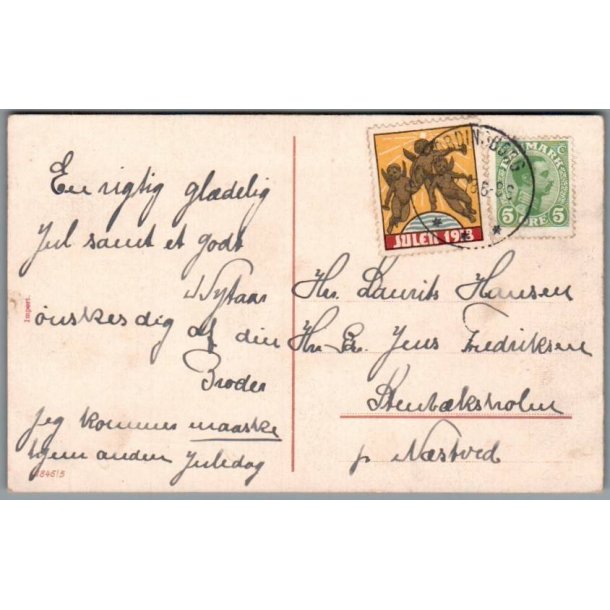 En rigtig glædelig
Jul samt et godt
Nytaar
ønskes dig af din
Broder
Jeg kommer maaske
hjem anden Juledag
Import.
184615
JULEN 1913
VORDINGBORG
DANMARK
5 ØRE 5
Hr. Laurits Hansen
Hr. Jens Fredriksen
Stenbæksholm
pr Næstved